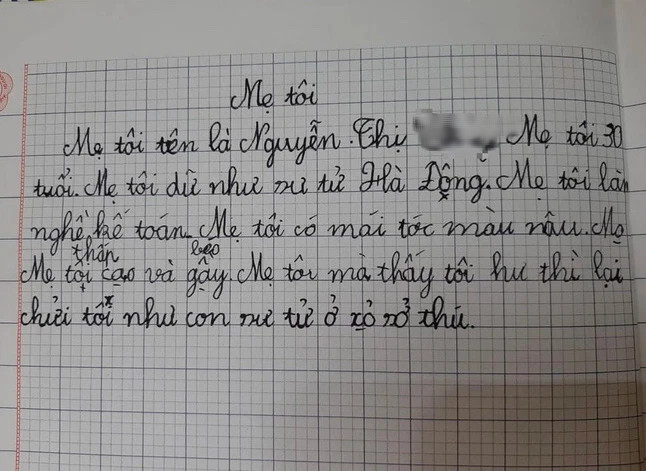 Mẹ tôi
Mẹ tôi tên là Nguyễn Thị Mẹ tôi 30
tuổi. Mẹ tôi dữ như sư tử Hà Động. Mẹ tôi làm
nghề kế toán. Mẹ tôi có mái tóc màu nâu. Mẹ
thấp béo
Mẹ tôi cao và gầy. Mẹ tôi mà thấy tôi hư thì lại
chửi tôi như con sư tử ở xỏ sở thú.